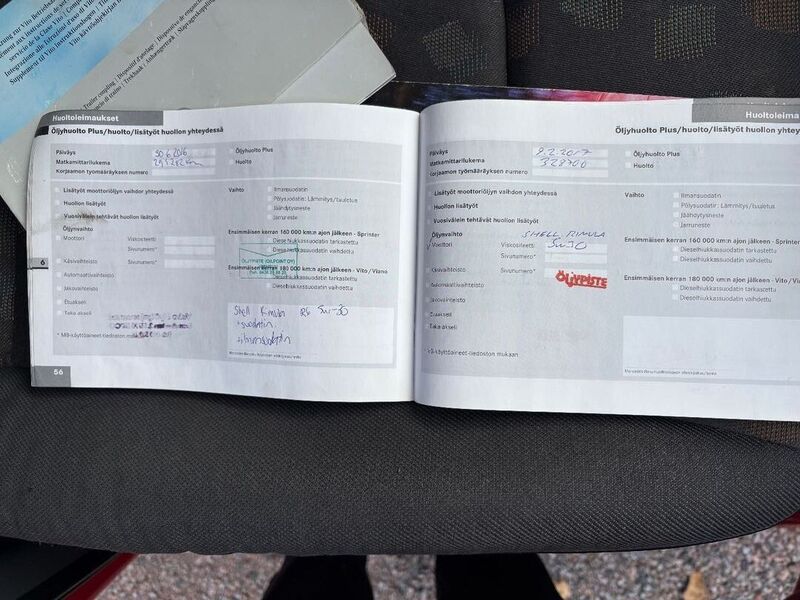 Supplement til Vito instruktionsbogen
Trailer coupling
Huoltoleimaukset
Öljyhuolto Plus/huolto/lisätyöt huollon yhteydessä
Päiväys 30.6.2016
Matkamittarilukema
Korjaamon työmääräyksen numero
Öljyhuolto Plus
Huolto
Lisätyöt moottoriöljyn vaihdon yhteydessä
Huollon lisätyöt
Vuosivälein tehtävät huollon lisätyöt
Öljynvaihto
Moottori Viskositeetti
Sivunumero*
Käsivaihteisto Sivunumero*
Automaattivaihteisto
Jakovaihteisto
Etuakseli
Taka-akseli
* MB-käyttöaineet-tiedoston mukaan
Vaihto Ilmansuodatin
Pölysuodatin: Lämmitys/tuuletus
Jäähdytysneste
Jarruneste
Ensimmäisen kerran 160 000 km:n ajon jälkeen - Sprinter
Dieselhiukkassuodatin tarkastettu
Dieselhiukkassuodatin vaihdettu
ÖLJYPISTE (OILPOINT OY)
Ensimmäisen kerran 180 000 km:n ajon jälkeen - Vito / Viano
Dieselhiukkassuodatin tarkastettu
Dieselhiukkassuodatin vaihdettu
Shell Rimula R6 5w-30
+suodatin
+ilmansuodatin
6
56
Huoltoleima
Öljyhuolto Plus/huolto/lisätyöt huollon yhteyd
Päiväys 9.2.2017
Matkamittarilukema 328700
Korjaamon työmääräyksen numero
Öljyhuolto Plus
Huolto
Lisätyöt moottoriöljyn vaihdon yhteydessä
Huollon lisätyöt
Vuosivälein tehtävät huollon lisätyöt
Öljynvaihto SHELL RIMULA
Moottori Viskositeetti 5w30
Sivunumero*
Käsivaihteisto Sivunumero*
ÖLJYPISTE
Automaattivaihteisto
Jakovaihteisto
Etuakseli
Taka-akseli
* MB-käyttöaineet-tiedoston mukaan
Vaihto Ilmansuodatin
Pölysuodatin: Lämmitys/tuuletus
Jäähdytysneste
Jarruneste
Ensimmäisen kerran 160 000 km:n ajon jälkeen - Sprinter
Dieselhiukkassuodatin tarkastettu
Dieselhiukkassuodatin vaihdettu
Ensimmäisen kerran 180 000 km:n ajon jälkeen - Vito / Viano
Dieselhiukkassuodatin tarkastettu
Dieselhiukkassuodatin vaihdettu